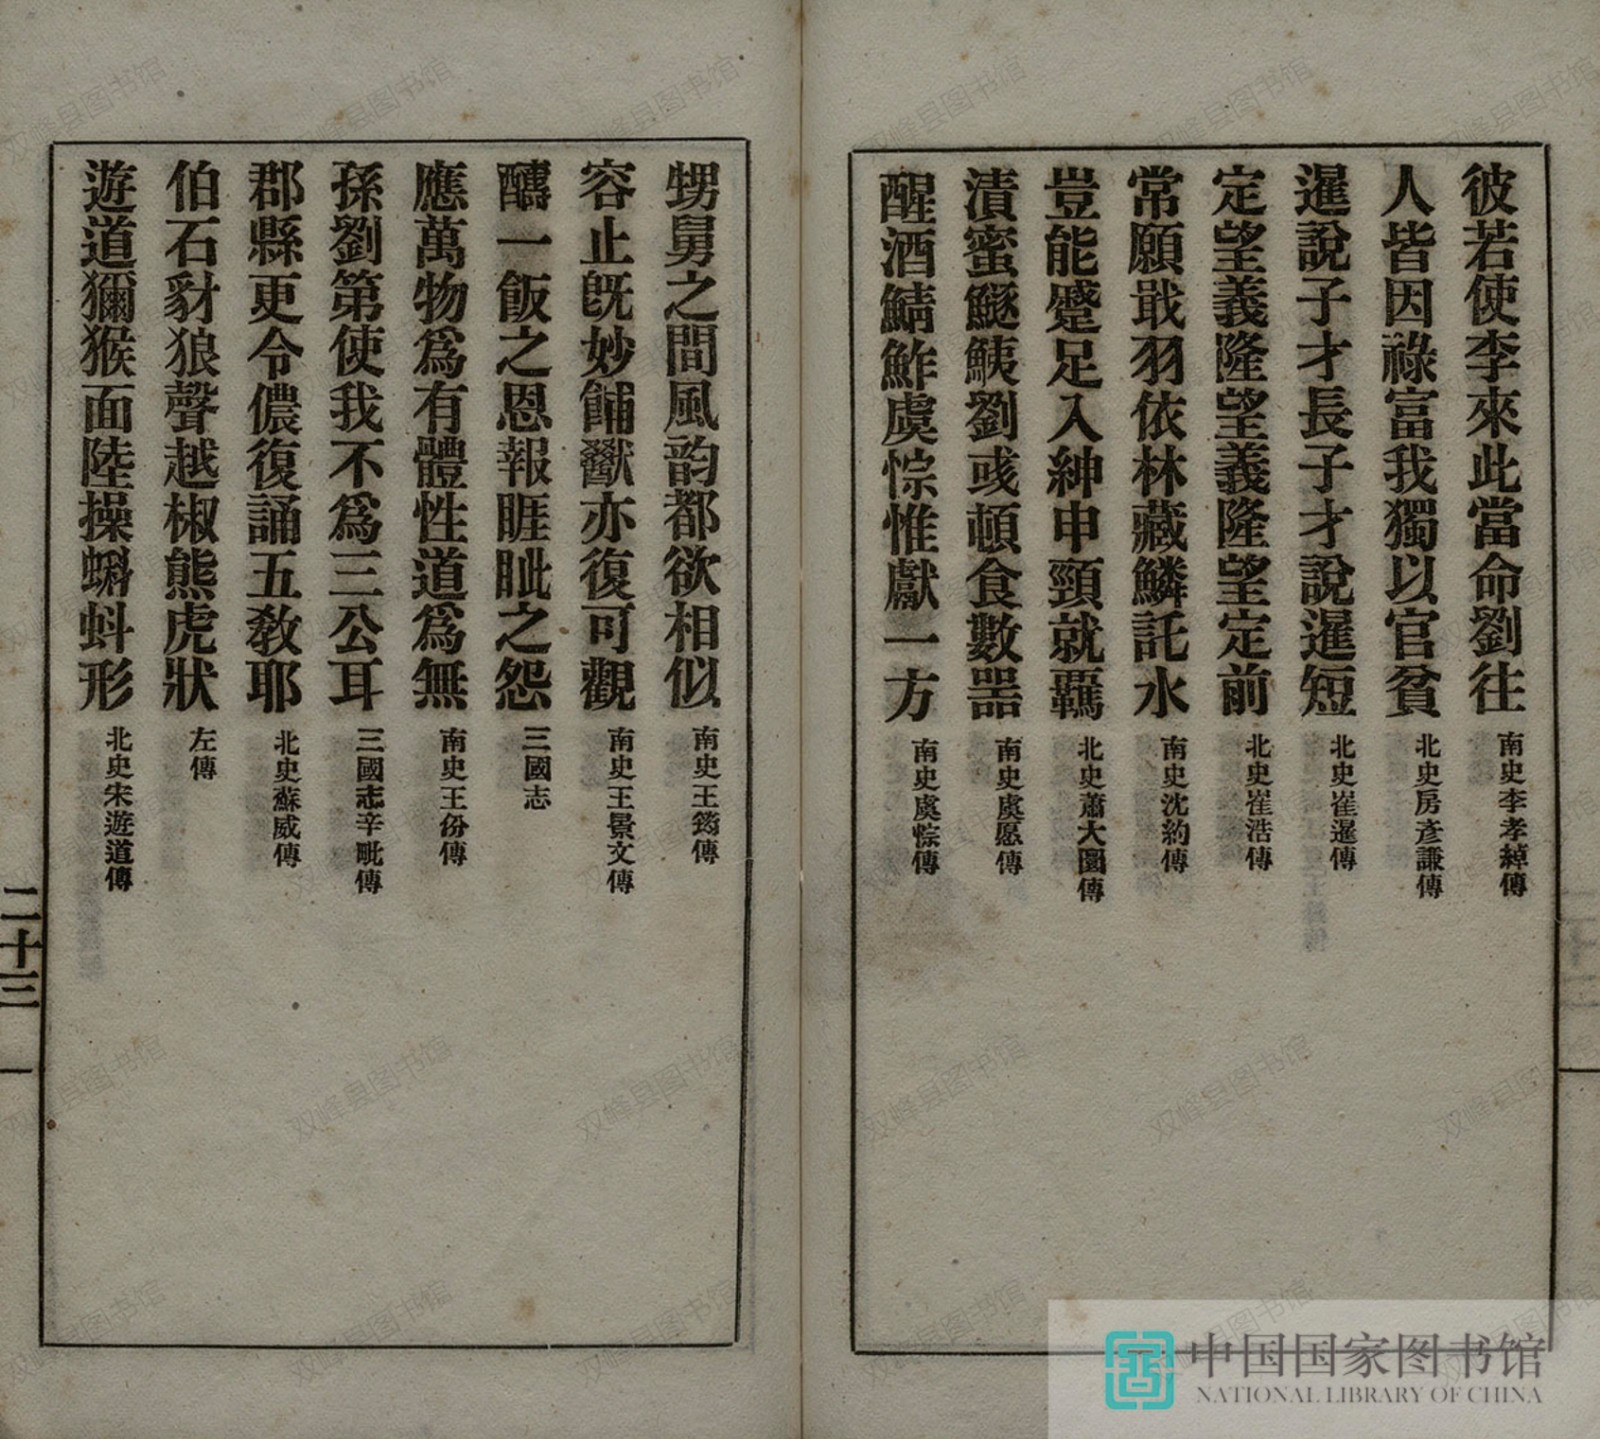 彼若使李來此當命劉往 南史李孝綽傳
人皆因祿富我獨以官貧 北史房彥謙傳
暹說子才長子才說暹短 北史崔暹傳
定望義隆望義隆望定前 北史崔浩傳
常願戢羽依林藏鱗託水 南史沈約傳
豈能蹙足入紳申頸就羈 北史蕭大圜傳
漬蜜鱁鮧劉彧頓食數器 南史虞愿傳
醒酒鯖鮓虞悰惟獻一方 南史虞悰傳
甥舅之間風韵都欲相似 南史王筠傳
容止旣妙餔歠亦復可觀 南史王景文傳
醻一飯之恩報睚眦之怨 三國志
應萬物爲有體性道爲無 南史王份傳
孫劉第使我不爲三公耳 三國志辛毗傳
郡縣更令儂復誦五敎耶 北史蘇威傳
伯石豺狼聲越椒熊虎狀 左傳
遊道獼猴面陸操蝌蚪形 北史宋遊道傳
二十三
中国国家图书馆
NATIONAL LIBRARY OF CHINA
双峰县图书馆